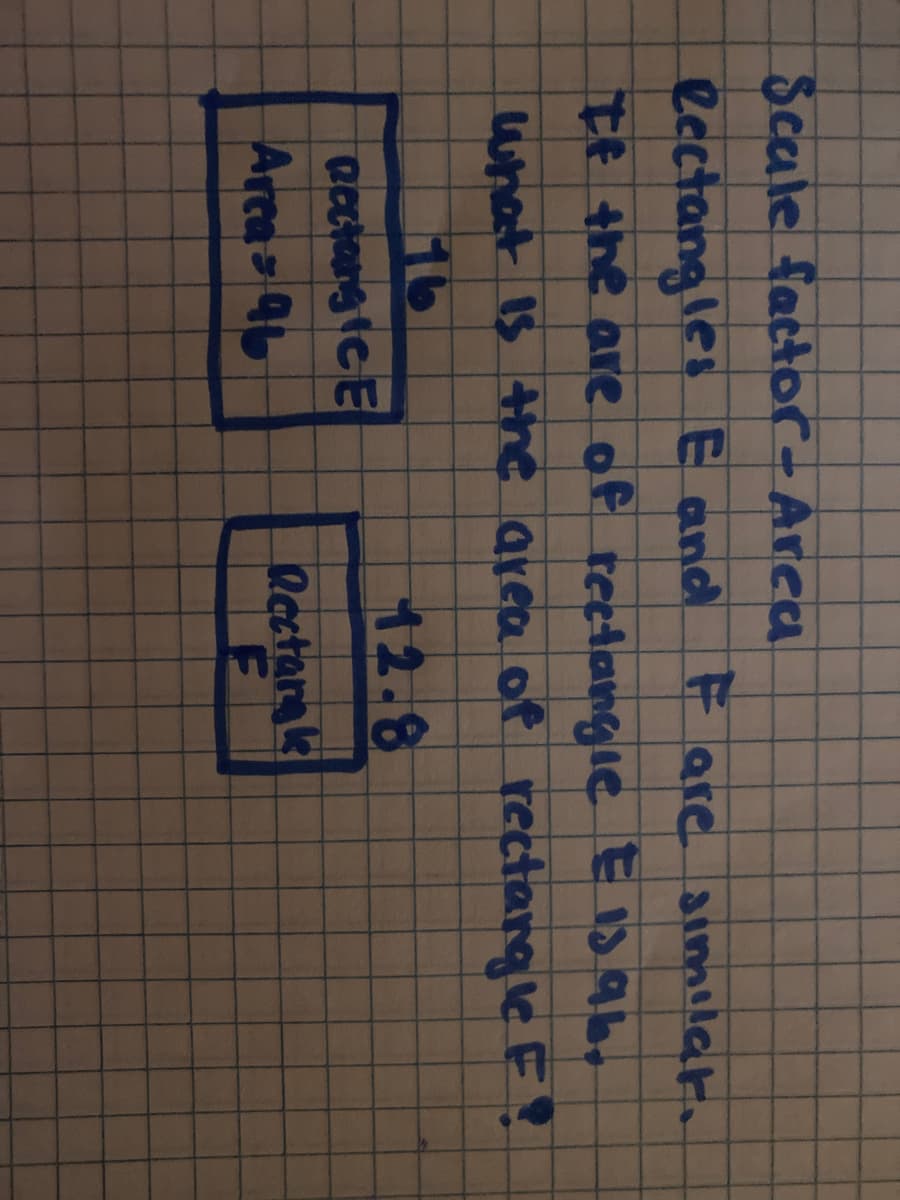 Scale factor-Area
Rectangles E and F are similar.
If the are of rectangle E is 96.
What is the area of rectangle F?
16
Rectangle E
Area = 96
12.8
Rectangle
F